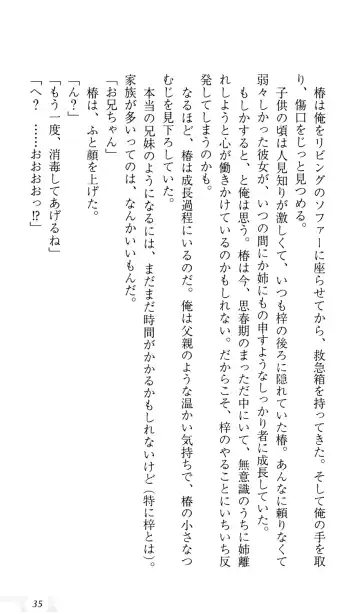 椿は俺をリビングのソファーに座らせてから、救急箱を持ってきた。そして俺の手を取
り、傷口をじっと見つめる。
　子供の頃は人見知りが激しくて、いつも梓の後ろに隠れていた椿。あんなに頼りなくて
弱々しかった彼女が、いつの間にか姉にもの申すようなしっかり者に成長していた。
　もしかすると、と俺は思う。椿は今、思春期のまっただ中にいて、無意識のうちに姉離
れしようと心が働きかけているのかもしれない。だからこそ、梓のやることにいちいち反
発してしまうのかも。
　なるほど、椿は成長過程にいるのだ。俺は父親のような温かい気持ちで、椿の小さなつ
むじを見下ろしていた。
　本当の兄妹のようになるには、まだまだ時間がかかるかもしれないけど（特に梓とは）。
家族が多いってのは、なんかいいもんだ。
「お兄ちゃん」
　椿は、ふと顔を上げた。
「ん？」
「もう一度、消毒してあげるね」
「へ？　……おおおおっ!?」
35